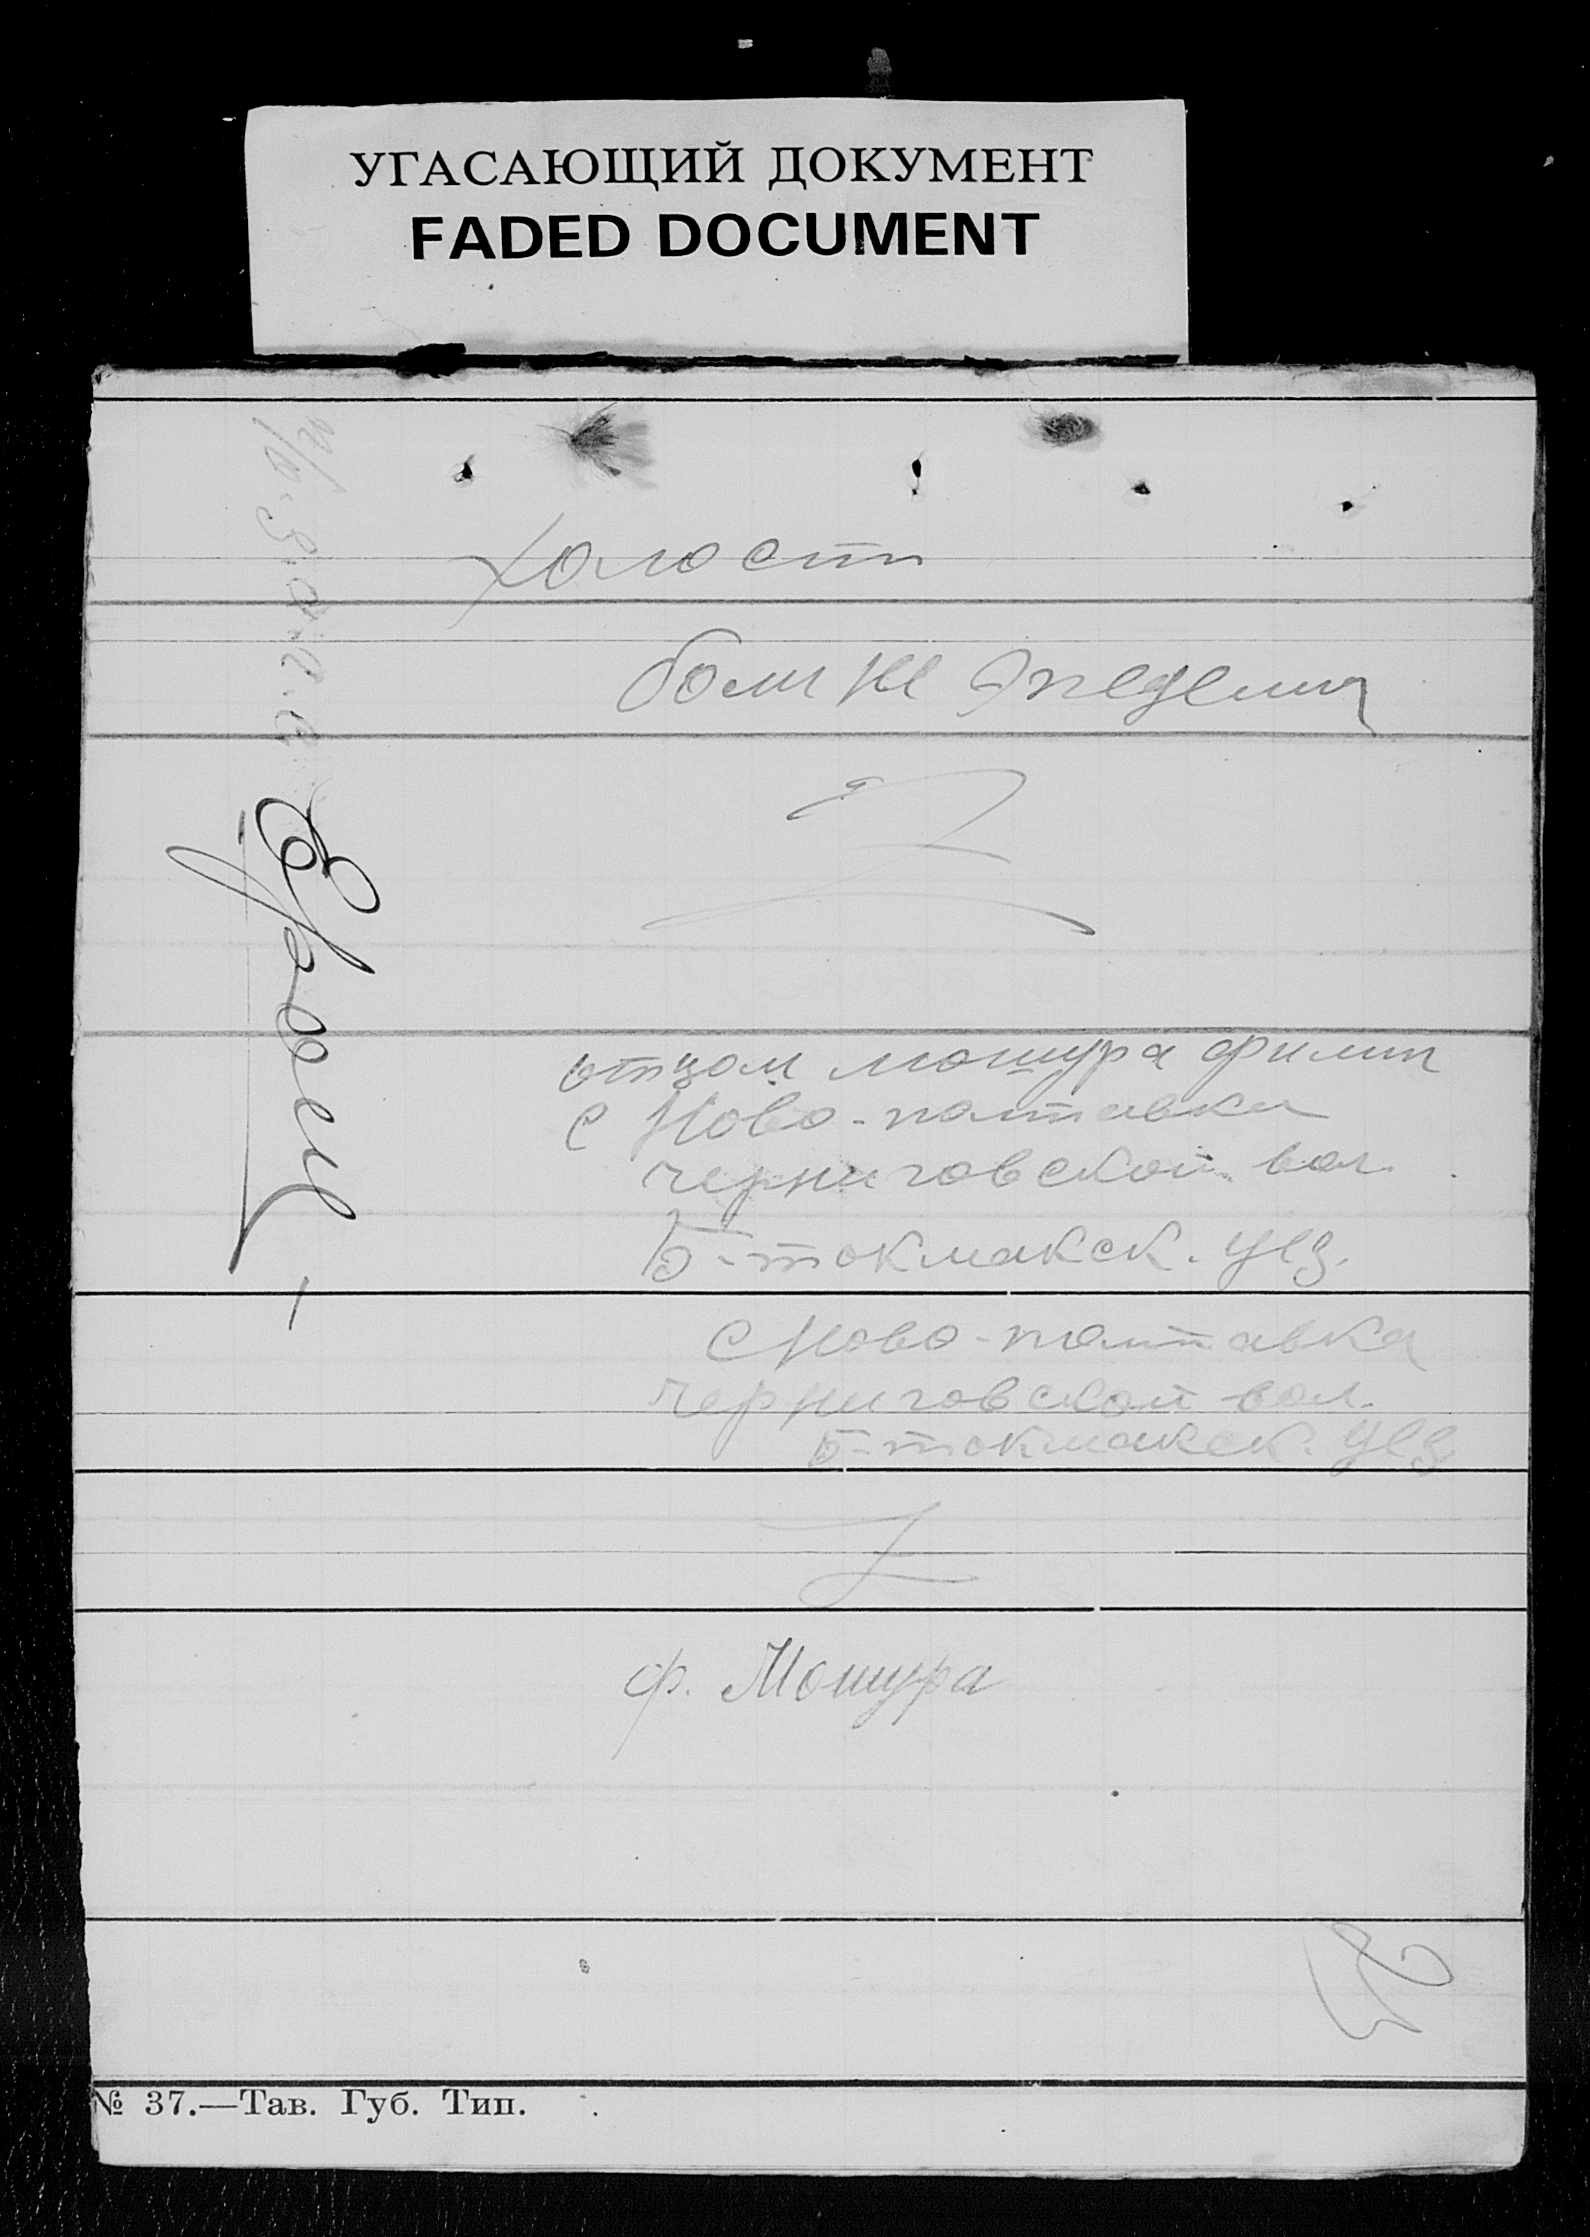 УГАСАЮЩИЙ ДОКУМЕНТ
FADED DOCUMENT
холост
боли не
отцом мошура филип
с Ново-полтавки
черниговской вол.
Б-токмакск. уез.
с Ново-полтавка
черниговской вол.
Б-токмакск. уез
Ф. Мошура
№ 37.—Тав. Губ. Тип.